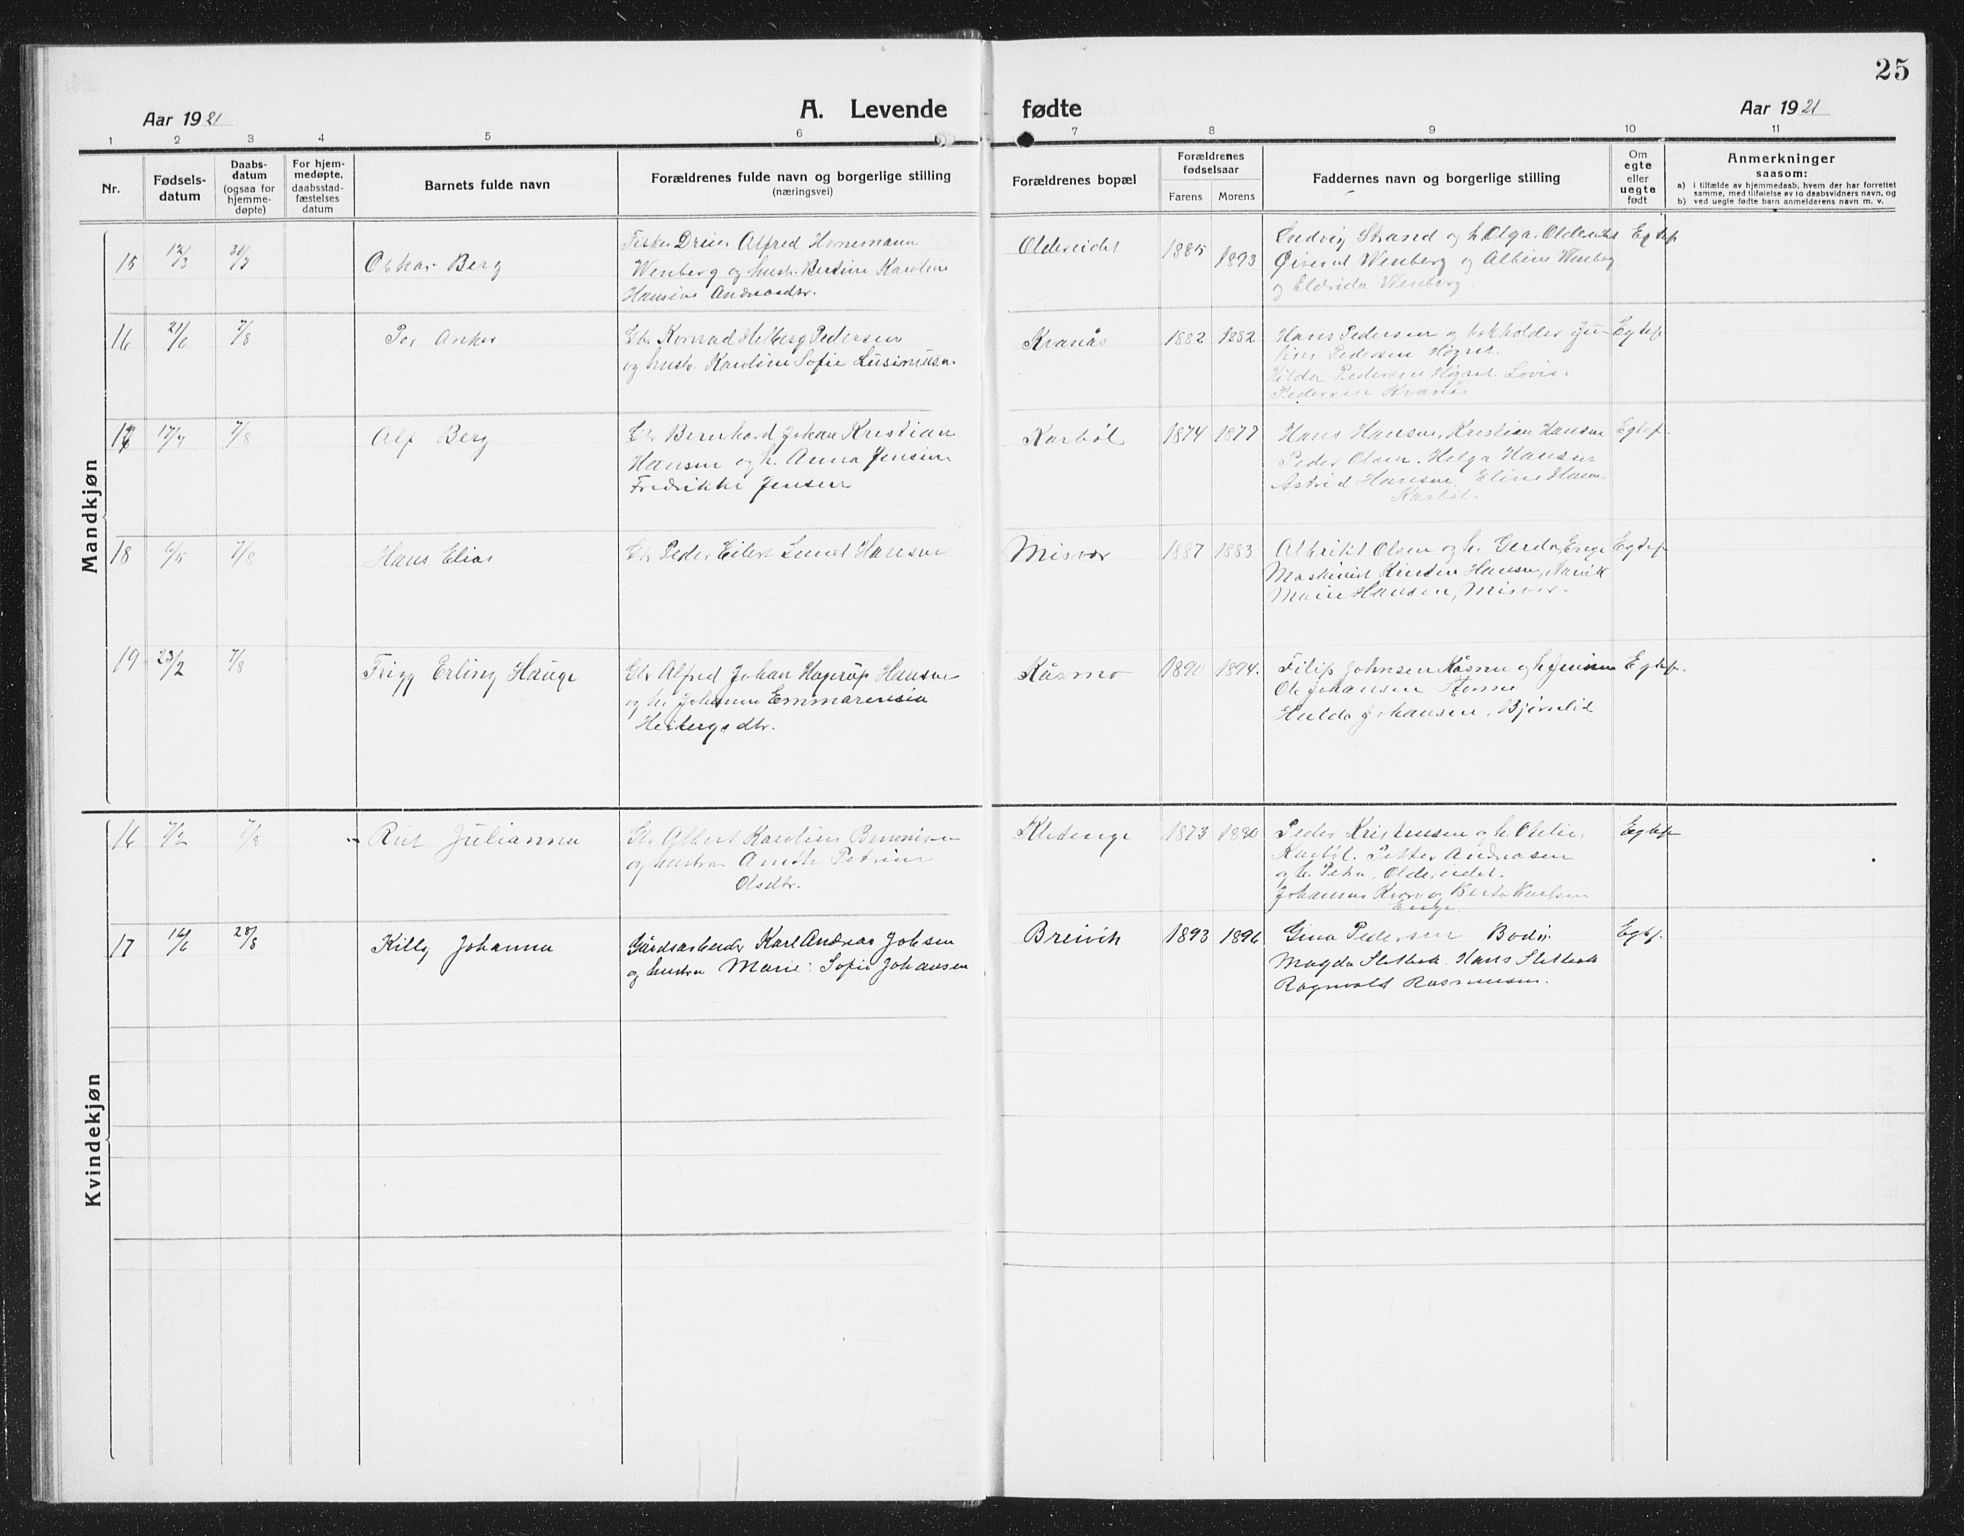 25
Aar 1921
A. Levende fødte
Aar 1921
1 2 3 4 5 6 7 8 9 10 11
Nr.
Fødsels-
datum
Daabs-
datum
(ogsaa for
hjemme-
døpte)
For hjem-
medøpte,
daabsstad-
fæstelses
datum
Barnets fulde navn
Forældrenes fulde navn og borgerlige stilling
(næringsvei)
Forældrenes bopæl
Forældrenes
fødselsaar
Farens Morens
Faddernes navn og borgerlige stilling
Om
egte
eller
uegte
født
Anmerkninger
saasom:
a) i tilfælde av hjemmedaab, hvem der har forrettet
samme, med tilføielse av to daabsvidners navn, og
b) ved uegte fødte barn anmelderens navn m. v.
Mandkjøn
15 12/3 Oskar Berg
Fisker Alfred Hornemann
Wenberg og hustr. Bertine Karoline
Hansine Andreasdtr.
Oldereidet 1885 1893
Ludvig Strand og h. Olga, Oldereidet
Wenberg og Albine Wenberg
og Eldrida Wenberg
Egtef
16 21/6 7/8 Per Anker
Gbr. Konrad Helberg Pedersen
og hustr. Karoline Sofie
Kvanås 1882 1882
Hans Pedersen og bokholder Ju-
lius Pedersen Høgset.
Hilda Pedersen Høgset. Lovise
Pedersen Kvanås
Egtef
17 17/7 7/8 Alf Berg
Gbr. Bernhard Johan Kristian
Hansen og h. Anna Jensine
Fredrikke Jensen
Karbøl 1874 1877
Hans Hansen, Kristian Hansen
Peder Olsen. Helga Hansen
Astrid Hansen, Eline Hansen
Karbøl.
Egtef.
18 6/5 7/8 Hans Elias
Gbr. Peder Eilert Lund Hansen
Misvær 1887 1883
Albrikt Olsen og h. Gerda, Enge
Maskinist Kristen Hansen, Narvik
Marie Hansen, Misvær.
Egtef
19 23/2 7/8 Frigg Erling Hauge
Gbr. Alfred Johan Hagerup Hansen
og h. Johanne Emmarensia
Heibergsdtr.
Kåsmo 1890 1894.
Filip Johnsen Kåsmo og h.
Ole Johansen
Hulda Johansen, Bjørnlid
Egtef.
Kvindekjøn
16 7/2 7/8 Rut Julianna
Gbr. Albert Karolius
og hustru Petrine
Olsdtr.
Kletenge 1873 1880
Peder Kristensen og h. Otelie,
Karbøl. Petter Andreasen
og h. Petra, Oldereidet.
Johannes og Berta Karlsen
Enge
Egtef
17 16/6 28/8 Killy Johanna
Gårdsarbeider Karl Andreas Johsen
og hustru Marie Sofie Johansen
Breivik 1893 1896
Gina Pedersen Bodø.
Magda Sletbak. Hans Sletbak
Ragnvald Rasmussen.
Egtef.